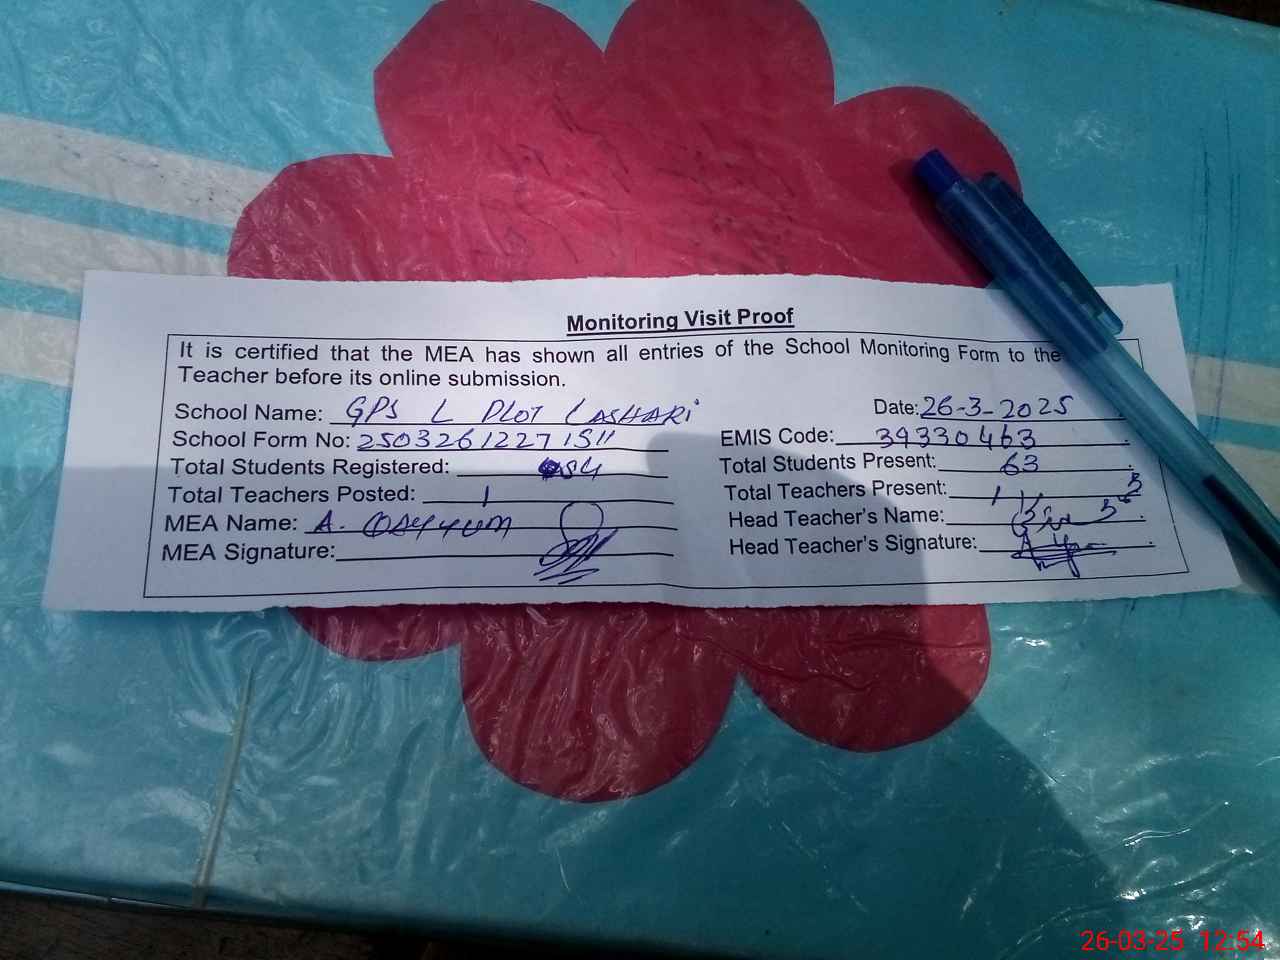 Monitoring Visit Proof
It is certified that the MEA has shown all entries of the School Monitoring Form to the
Teacher before its online submission.
School Name: GPS L PLOT LASHARI Date: 26-3-2025
School Form No: 2503261227 EMIS Code: 39330463
Total Students Registered: 84 Total Students Present: 63
Total Teachers Posted: 1 Total Teachers Present: 1
MEA Name: A. QAYYUM Head Teacher's Name:
MEA Signature: Head Teacher's Signature:
26-03-25 12:54